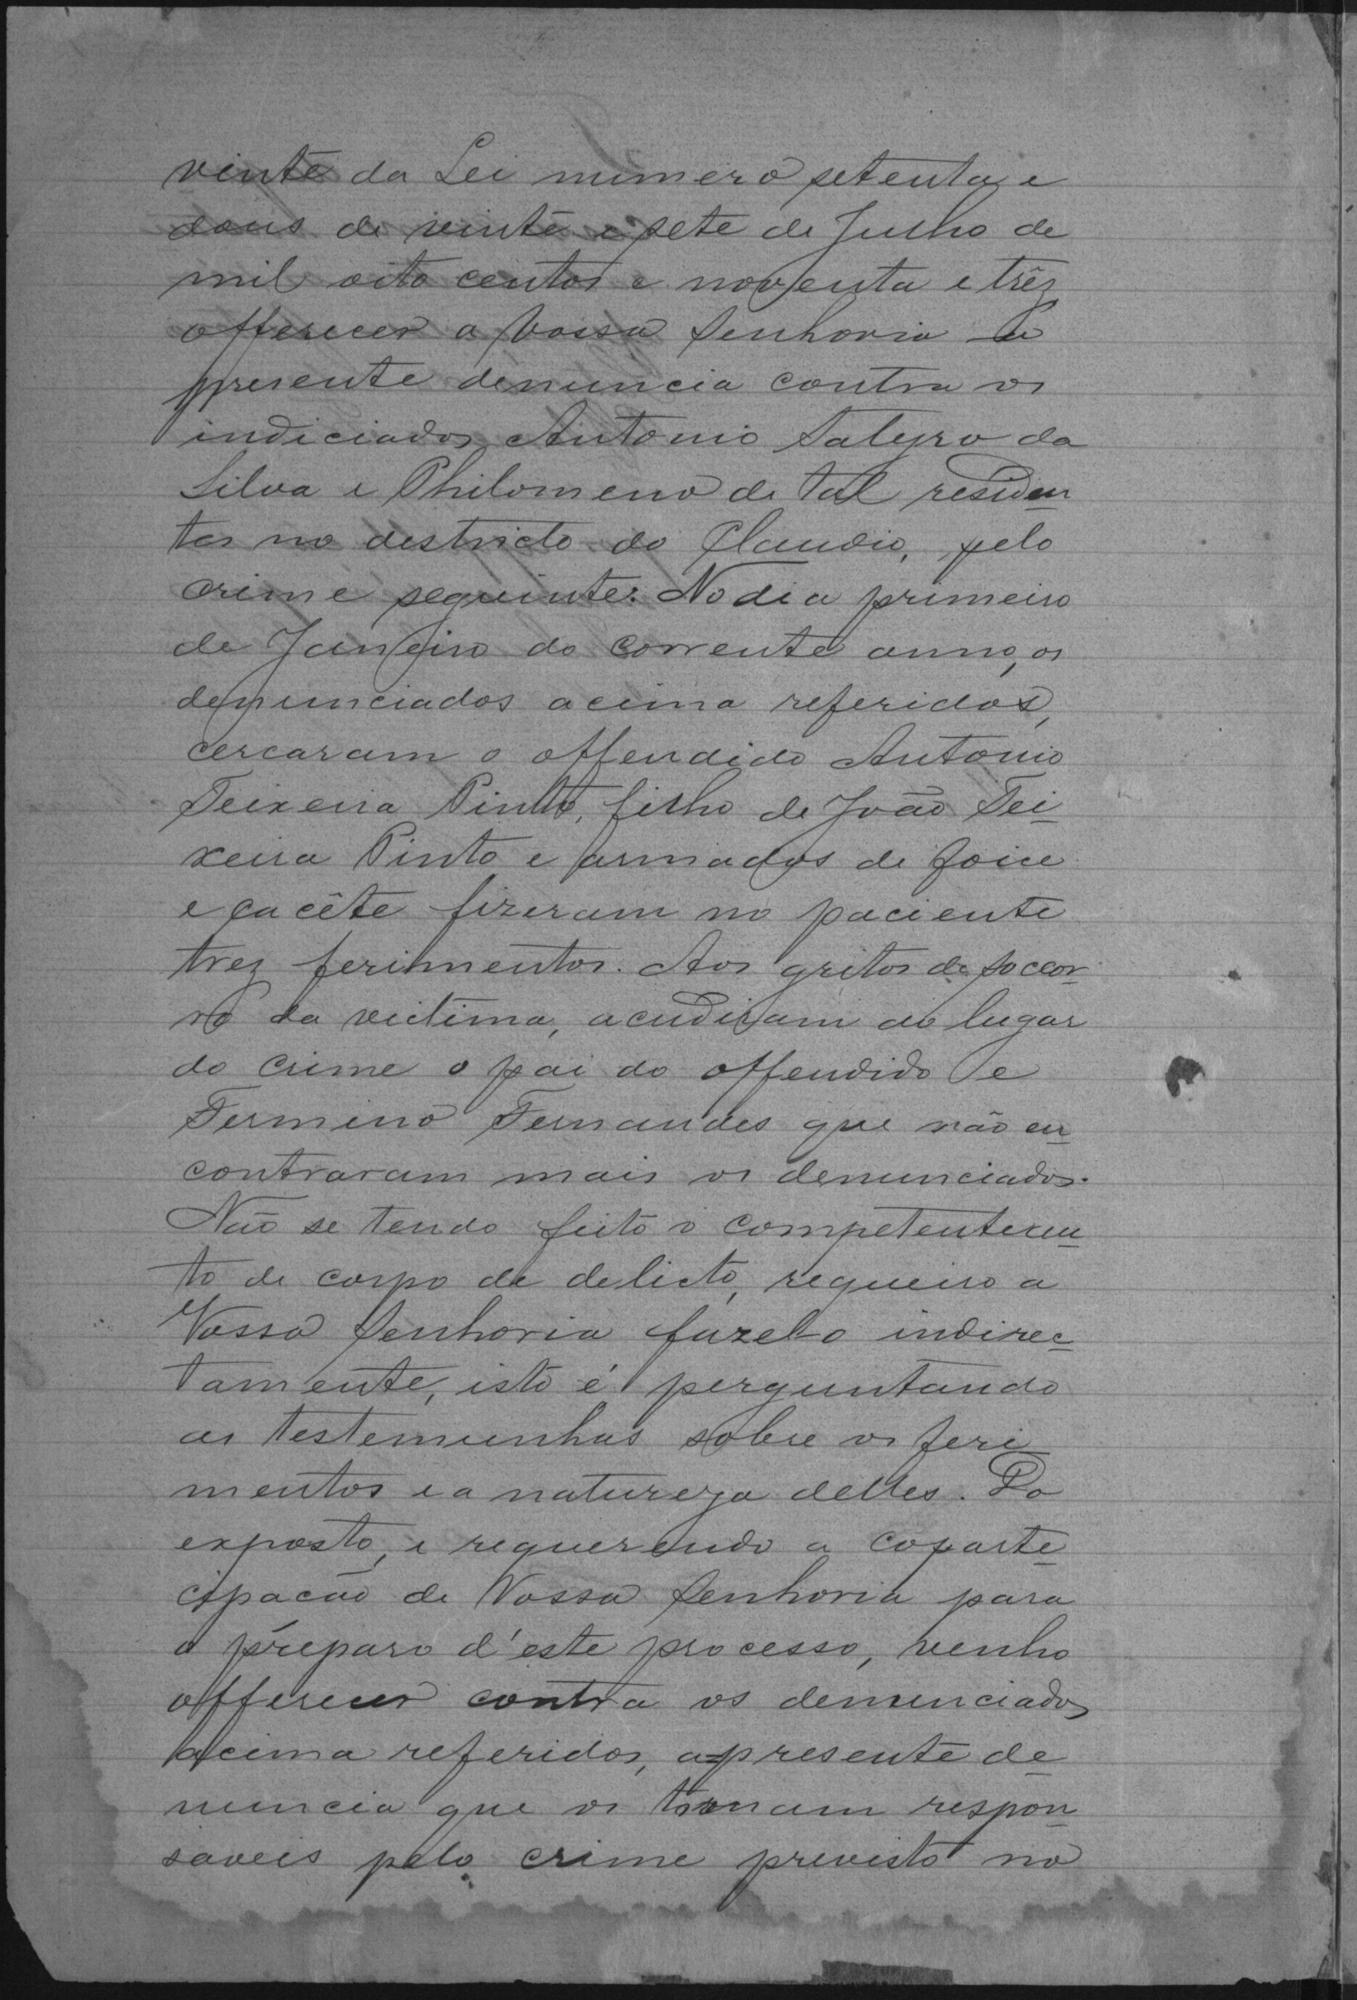 vinte da Lei numero setenta e
dous de vinte e sete de Julho de
mil oito centos e noventa e trêz
offerecer a Vossa Senhoria a
presente denuncia contra os
indiciados Antonio Satyro da
Silva e Philomeno de tal residen
tes no destricto do Claudio, pelo
crime seguinte: No dia primeiro
de Janeiro do corrente anno, os
denunciados acima referidos,
cercaram o offendido Antonio
Teixeira Pinto, filho de João Tei
xeira Pinto e armados de foice
e cacête fizeram no paciente
trez ferimentos. Aos gritos de soccor
ro da victima, acudiram ao lugar
do crime o pai do offendido e
Fermino Fernandes que não en
contraram mais os denunciados.
Não se tendo feito o competente ou
to de corpo de delicto, requeiro a
Vossa Senhoria fazel-o indirec
tamente, isto é perguntando
as testemunhas sobre os feri
mentos e a natureza delles. Do
exposto, e requerendo a coparte
cipacão de Vossa Senhoria para
o preparo d'este processo, venho
offerecer contra os denunciados
acima referidos, a presente de
nuncia que os tornam respon
saveis pelo crime previsto no